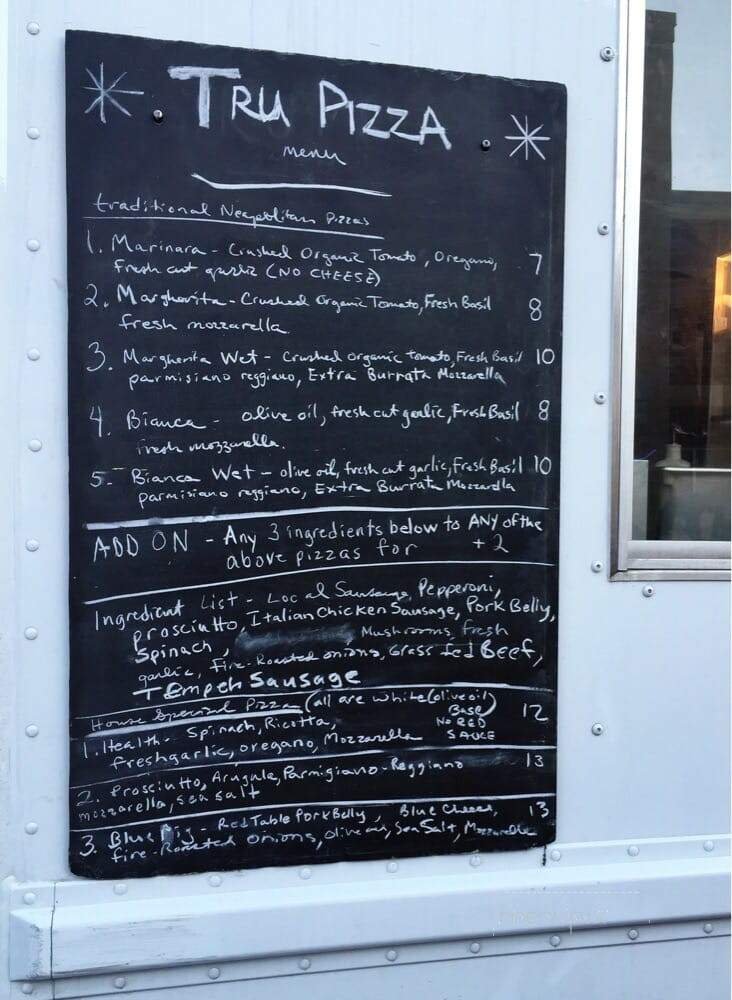 TRU PIZZA
menu
traditional Neapolitan Pizzas
1. Marinara - Crushed Organic Tomato, Oregano, 7
fresh cut garlic (NO CHEESE)
2. Margherita - Crushed Organic Tomato, Fresh Basil 8
fresh mozzarella.
3. Margherita Wet - Crushed organic tomato, Fresh Basil 10
parmisiano reggiano, Extra Burrata Mozzarella
4. Bianca - olive oil, fresh cut garlic, Fresh Basil 8
fresh mozzarella.
5- Bianca Wet - olive oil, fresh cut garlic, Fresh Basil 10
parmisiano reggiano, Extra Burrata Mozzarella
ADD ON - Any 3 ingredients below to ANY of the
above pizzas for +2
Ingredient List - Local Sausage, Pepperoni,
prosciutto, Italian Chicken Sausage, Pork Belly,
Spinach, Mushrooms, fresh
garlic, Fire-Roasted onions, Grass fed Beef,
Tempeh Sausage
House Special Pizza (all are white (olive oil)
Base) 12
NO RED
SAUCE
1. Health - Spinach, Ricotta,
fresh garlic, oregano, Mozzarella
2. Prosciutto, Arugula, Parmigiano-Reggiano 13
mozzarella, sea salt
3. Blue Pig - Red Table Pork Belly, Blue Cheese, 13
fire-Roasted onions, olive oil, Sea Salt, Mozzarella